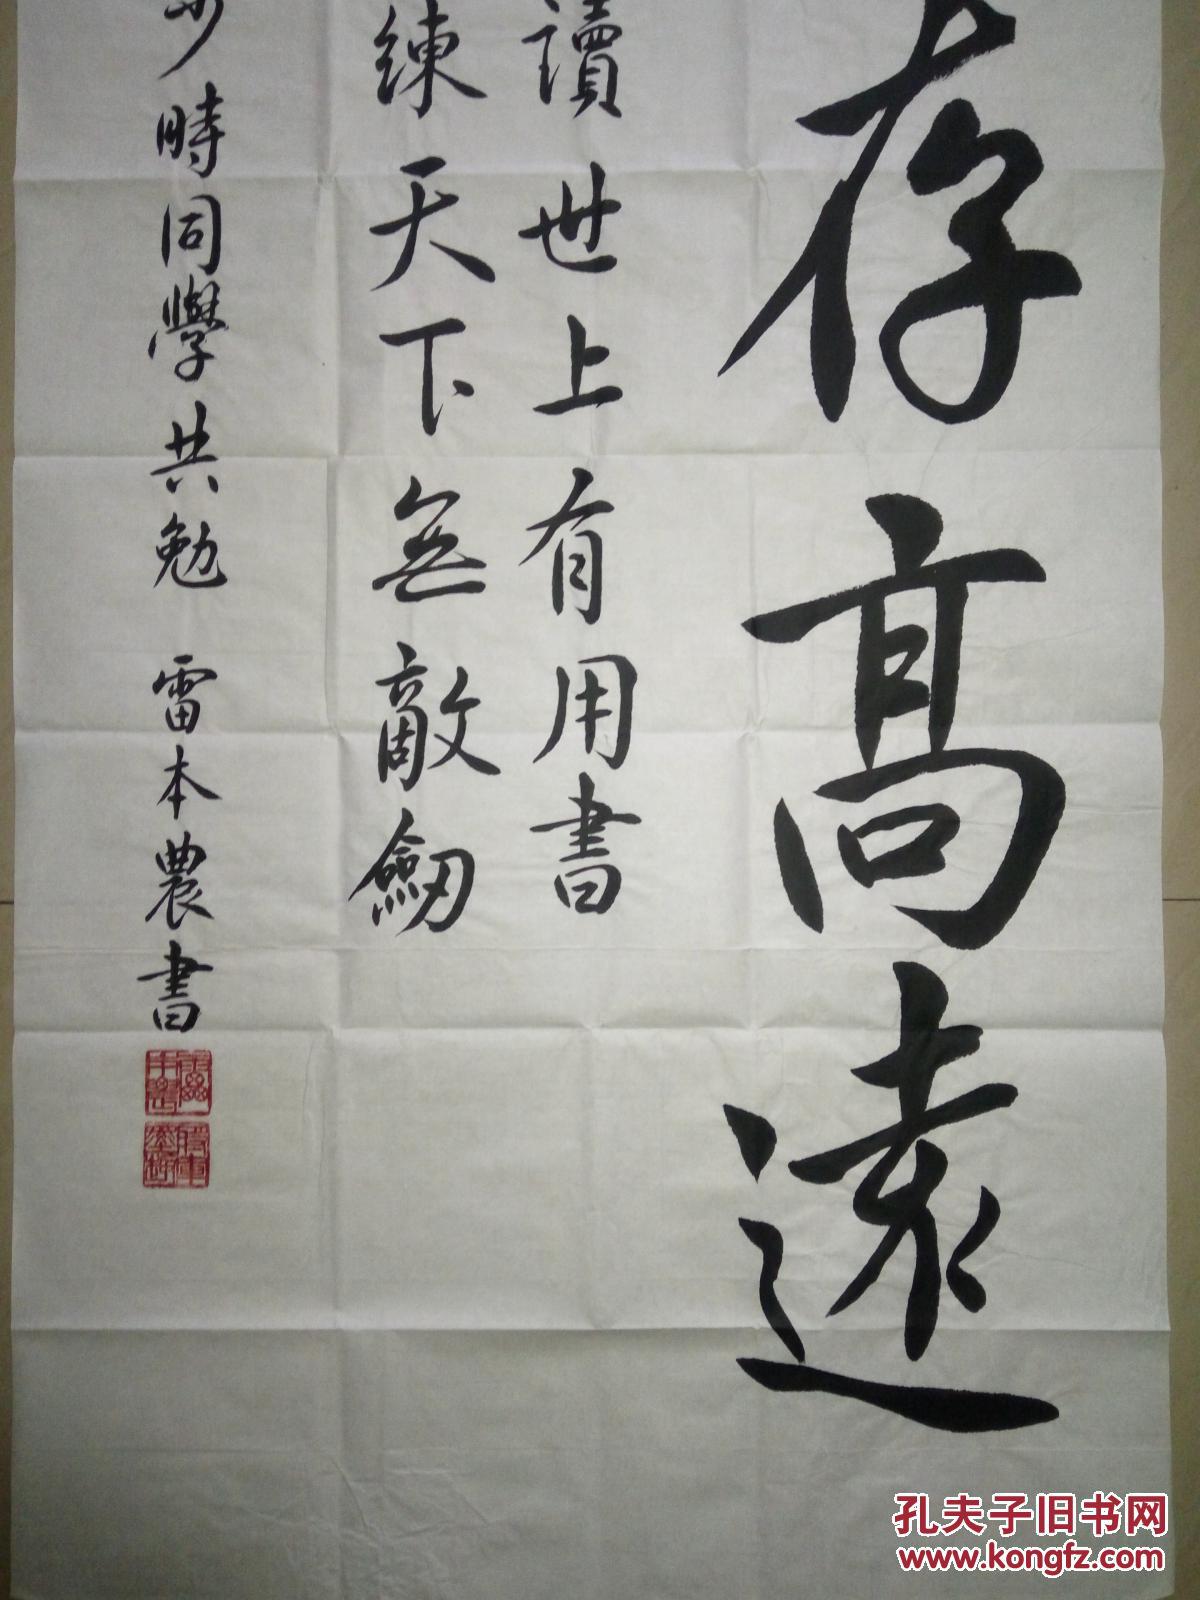 存高遠
讀世上有用書
練天下無敵劒
少時同學共勉 雷本農書
孔夫子旧书网
www.kongfz.com